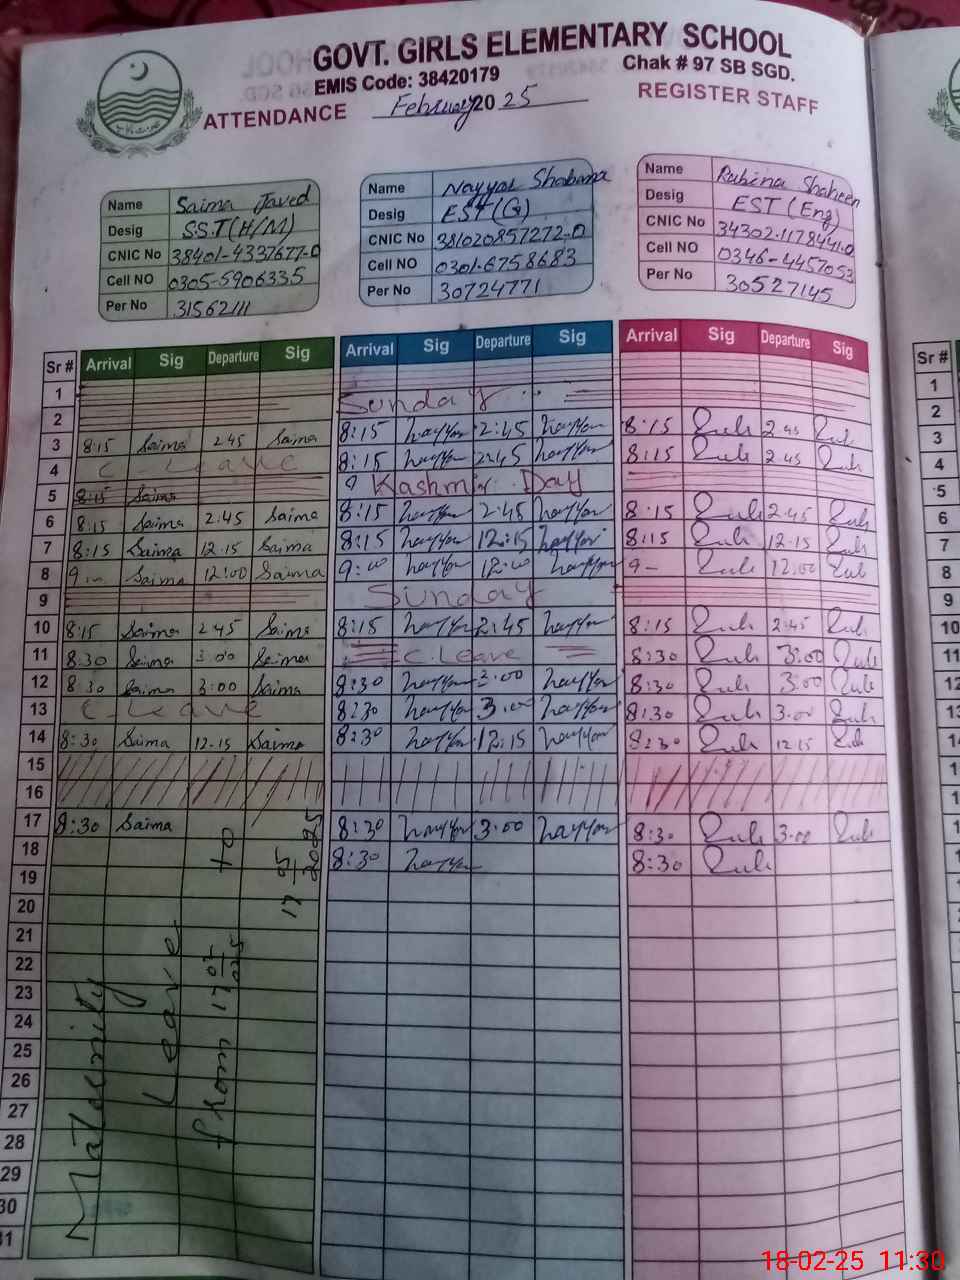 GOVT. GIRLS ELEMENTARY SCHOOL
EMIS Code: 38420179 Chak # 97 SB SGD.
ATTENDANCE February 2025 REGISTER STAFF
Name Saima Javed
Desig SST (H/M)
CNIC No 38401-4337677-0
Cell NO 0305-5906335
Per No 31562111
Name Nayyar Shabana
Desig EST (G)
CNIC No 381020857272-0
Cell NO 0301-6758683
Per No 30724771
Name Rubina Shaheen
Desig EST (Eng)
CNIC No 34302-1178441-0
Cell NO 0346-4457053
Per No 30527145
Sr # Arrival Sig Departure Sig Arrival Sig Departure Sig Arrival Sig Departure Sig
1
2 Sunday
3 8:15 Saima 2:45 Saima 8:15 Nayyar 2:45 Nayyar 8:15 Rub 2:45 Rub
4 C Leave 8:15 Nayyar 2:45 Nayyar 8:15 Rub 2:45 Rub
5 8:15 Saima 9 Kashmir Day
6 8:15 Saima 2:45 Saima 8:15 Nayyar 2:45 Nayyar 8:15 Rub 2:45 Rub
7 8:15 Saima 12.15 Saima 8:15 Nayyar 12:15 Nayyar 8:15 Rub 12.15 Rub
8 9 — Saima 12:00 Saima 9:00 Nayyar 12:00 Nayyar 9 — Rub 12:00 Rub
9 Sunday
10 8:15 Saima 2:45 Saima 8:15 Nayyar 2:45 Nayyar 8:15 Rub 2:45 Rub
11 8:30 Saima 3:00 Saima C. Leave 8:30 Rub 3:00 Rub
12 8:30 Saima 3:00 Saima 8:30 Nayyar 3:00 Nayyar 8:30 Rub 3:00 Rub
13 C - Leave 8:30 Nayyar 3:00 Nayyar 8:30 Rub 3:00 Rub
14 8:30 Saima 12.15 Saima 8:30 Nayyar 12:15 Nayyar 8:30 Rub 12:15 Rub
15
16
17 8:30 Saima 8:30 Nayyar 3:00 Nayyar 8:30 Rub 3:00 Rub
18 8:30 Nayyar 8:30 Rub
19
20
21
22
23
24
25
26
27
28
29
30
31
Maternity
Leave
from 17 02 2025 to
17 5 2025
Sr #
1
2
3
4
5
6
7
8
9
10
11
12
13
14
18-02-25 11:30